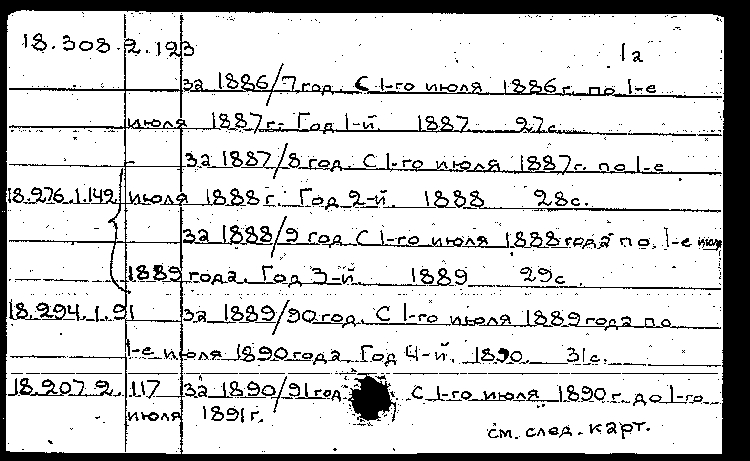 18.308.2.123
1а
за 1886/7 год. С 1-го июля 1886 г. по 1-е
июля 1887 г. Год 1-й. 1887 27 с.
за 1887/8 год. С 1-го июля 1887 г. по 1-е
18.276.1.142 июля 1888 г. Год 2-й. 1888 28 с.
за 1888/9 год. С 1-го июля 1888 года по 1-е июля
1889 года. Год 3-й. 1889 29 с.
18.294.1.91 за 1889/90 год. С 1-го июля 1889 года по
1-е июля 1890 года. Год 4-й. 1890. 31 с.
18.207.2.117 за 1890/91 год С 1-го июля 1890 г. до 1-го
июля 1891 г.
см. след. карт.